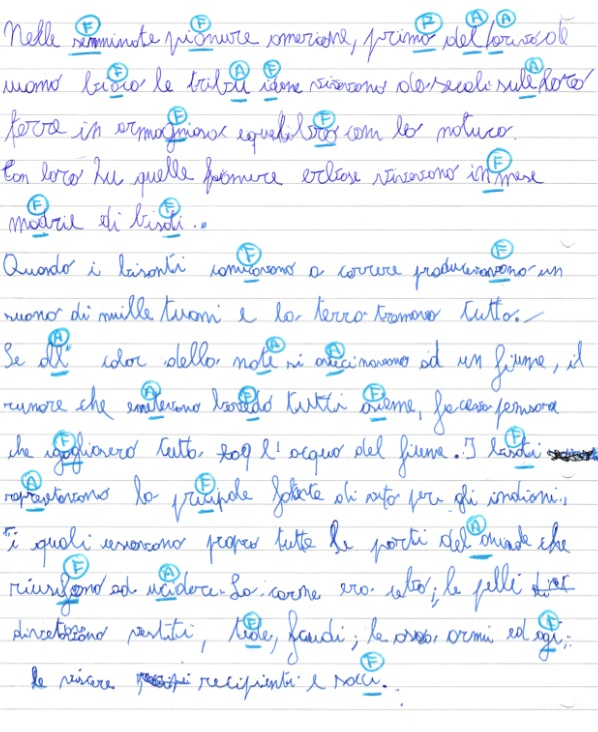 Nelle semminate pionure americane, primo del'arivo del
uomo bioio le tribù idene vivevano da secoli sulle loro
terre in armogniosa equelibro com la natura.
Con loro Lu quelle pianure erbose vivevano in mese
madrie di bisoti..
Quando i bisonti cominavano a correre producevanono un
suono di mille tuoni e la terra tremava tutto.
Se all' calar della note si avicinavano ad un fiume, il
rumore che emetevano bevedo tutti asieme, faceva pensare
che igogliasero tutta l'acqua del fiume. I bisoti
rapresetavano la pricipale fonte di vita per gli indiani,
i quali usavano propro tutte le parti del animale che
riusifano ad ucidere. La carne era cibo; le pelli
diventavano vestiti, tede, scudi; le ossa armi ed agi;
le viscere recipienti e sacci.